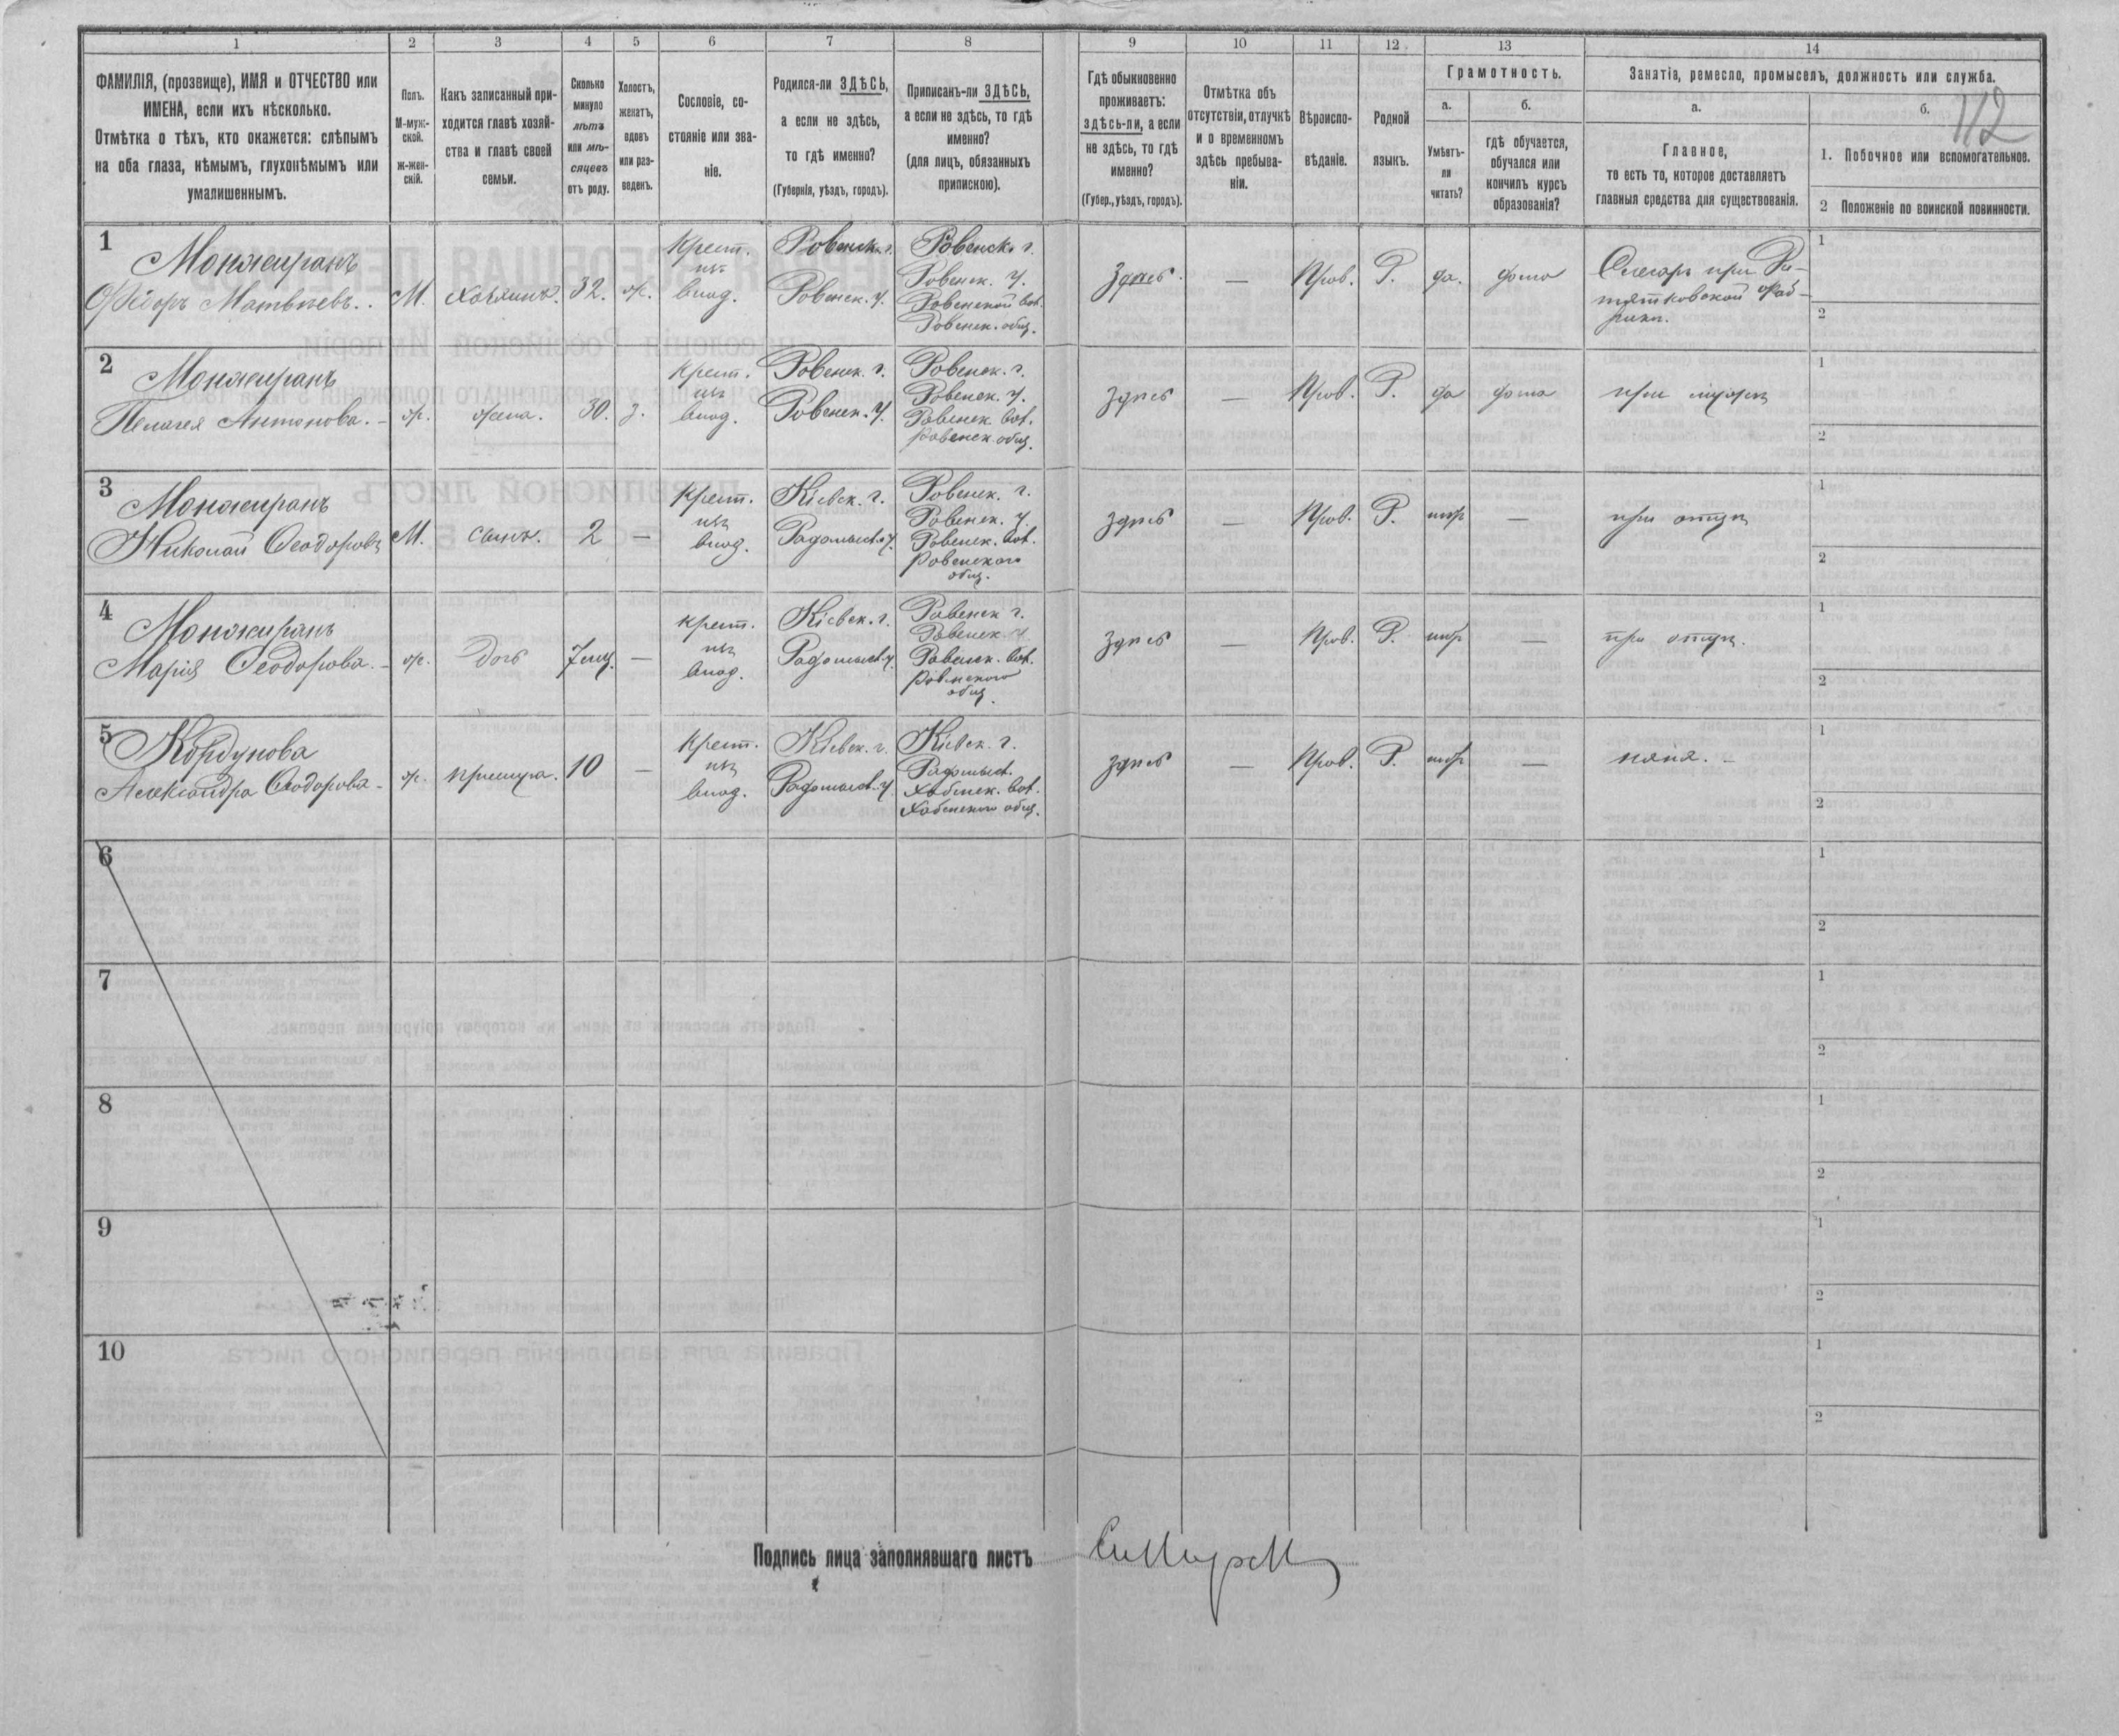 1 2 3 4 5 6 7 8 9 10 11 12 13 14
112
ФАМИЛІЯ, (прозвище), ИМЯ и ОТЧЕСТВО или
ИМЕНА, если ихъ нѣсколько.
Отмѣтка о тѣхъ, кто окажется: слѣпымъ
на оба глаза, нѣмымъ, глухонѣмымъ или
умалишеннымъ.
Полъ.
М-муж-
ской.
ж-жен-
скій.
Какъ записанный при-
ходится главѣ хозяй-
ства и главѣ своей
семьи.
Сколько
минуло
лѣтъ
или мѣ-
сяцевъ
отъ роду.
Холостъ,
женатъ,
вдовъ
или раз-
веденъ.
Сословіе, со-
стояніе или зва-
ніе.
Родился-ли ЗДѢСЬ,
а если не здѣсь,
то гдѣ именно?
(Губернія, уѣздъ, городъ).
Приписанъ-ли ЗДѢСЬ,
а если не здѣсь, то гдѣ
именно?
(для лицъ, обязанныхъ
припискою).
Гдѣ обыкновенно
проживаетъ:
здѣсь-ли, а если
не здѣсь, то гдѣ
именно?
(Губер., уѣздъ, городъ).
Отмѣтка объ
отсутствіи, отлучкѣ
и о временномъ
здѣсь пребыва-
ніи.
Вѣроиспо-
вѣданіе.
Родной
языкъ.
Грамотность.
а.
Умѣетъ-
ли
читать?
б.
гдѣ обучается,
обучался или
кончилъ курсъ
образованія?
Занятія, ремесло, промыселъ, должность или служба.
а.
Главное,
то есть то, которое доставляетъ
главныя средства для существованія.
б.
1. Побочное или вспомогательное.
2 Положеніе по воинской повинности.
1
Ѳедоръ Матвѣевъ.
М.
хозяинъ.
32.
ж.
Крест.
изъ
влад.
Ровенск. г.
Ровенск. у.
Ровенск. г.
Ровенск. у.
Ровенской вол.
Ровенск. общ.
Здѣсь.
—
Прав.
Р.
да.
дома
Слесарь при Ра-
1
2
2
Пелагея Антонова.
ж.
жена.
30.
з.
Крест.
изъ
влад.
Ровенск. г.
Ровенск. у.
Ровенск. г.
Ровенск. у.
Ровенск. вол.
Ровенск. общ.
здѣсь
—
Прав.
Р.
да
дома
при мужѣ
1
2
3
Николай Ѳеодоровъ
М.
сынъ.
2
—
Крест.
изъ
влад.
Кіевск. г.
Радомысл. у.
Ровенск. г.
Ровенск. у.
Ровенск. вол.
Ровенскаго
общ.
здѣсь
—
Прав.
Р.
—
при отцѣ
1
2
4
Марія Ѳеодорова.
ж.
дочь
—
крест.
изъ
влад.
Кіевск. г.
Радомысл. у.
Ровенск. г.
Ровенск. у.
Ровенск. вол.
Ровенскаго
общ.
здѣсь
—
Прав.
Р.
—
при отцѣ.
1
2
5
Кордунова
Александра Ѳеодорова
ж.
прислуга.
10
—
Крест.
изъ
влад.
Кіевск. г.
Радомысл. у.
Кіевск. г.
Радомысл.
Хабенск. вол.
Хабенскаго общ.
здѣсь
—
Прав.
Р.
—
няня.
1
2
6
1
2
7
1
2
8
1
2
9
1
2
10
1
2
Подпись лица заполнявшаго листъ